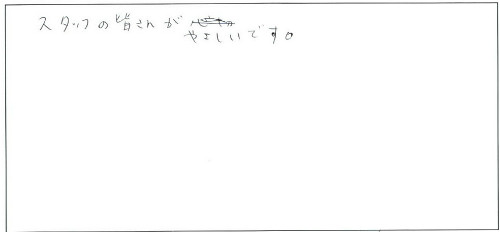 スタッフの皆さんが
やさしいです。